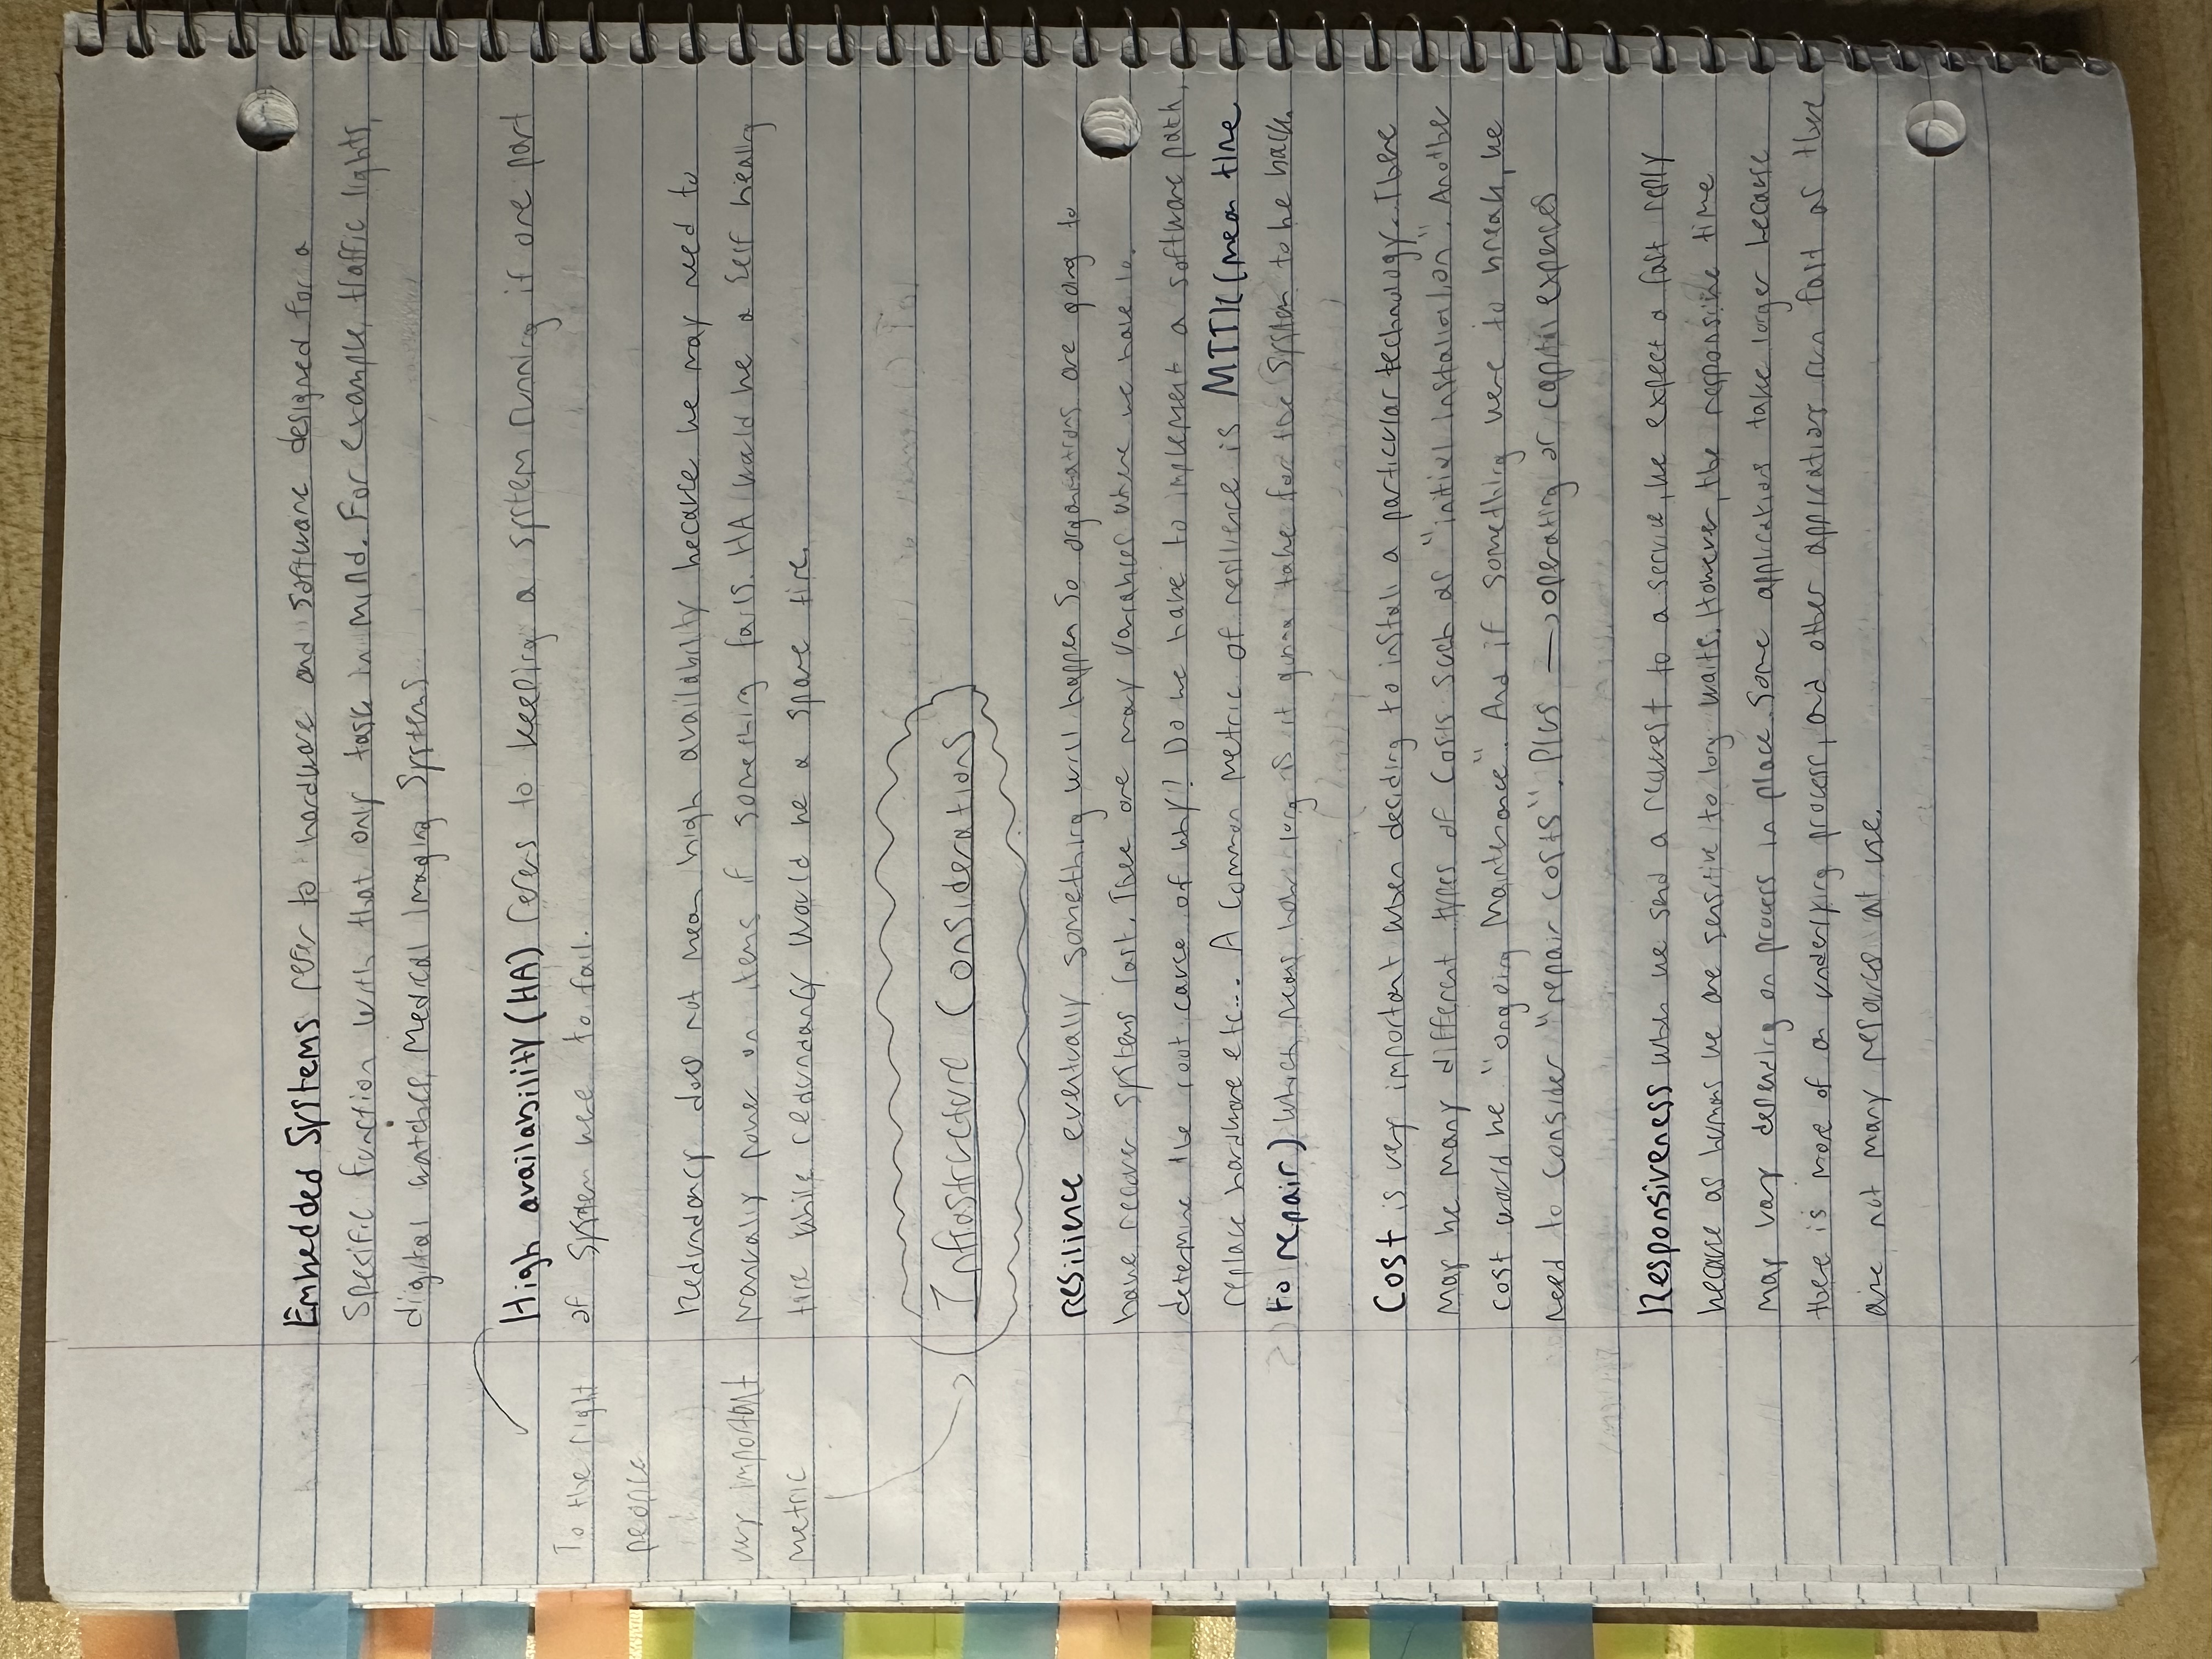 Embedded Systems refer to hardware and software designed for a
Specific function with that only task in mind. For example, traffic lights,
digital watches, Medical Imaging Systems
High availability (HA) refers to keeping a system running if one part
of system were to fail.
To the right
people
very important
metric
Redundancy does not mean high availability because we may need to
manually power on items if something fails. HA would be a self healing
tire while redundancy would be a spare tire.
Infrastructure Considerations
resilience eventually something will happen so organizations are going to
have recover systems fast. There are many variables where we have to
determine the root cause of why? Do we have to implement a software patch,
replace hardware etc... A common metric of resilience is MTTR (mean time
to repair) which means how long is it gunna take for the system to be back.
Cost is very important when deciding to install a particular technology. There
may be many different types of costs such as "initial installation". Another
cost would be "ongoing Maintenance". And if something were to break, we
need to consider "repair costs". Plus → operating or capital expenses
Responsiveness when we send a request to a service, we expect a fast reply
because as humans we are sensitive to long waits. However, the responsive time
may vary depending on process in place. Some applications take longer because
there is more of an underlying process, and other applications run fast as there
are not many resources at use.